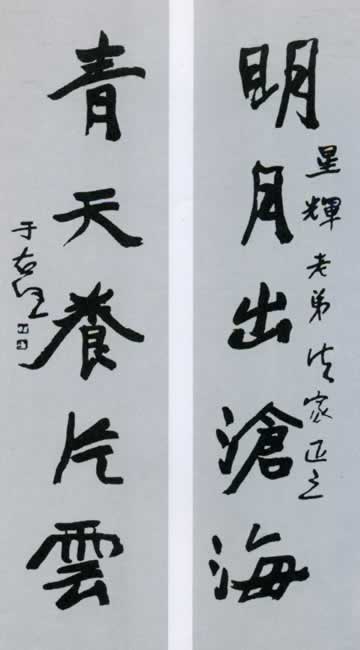 明月出滄海
星輝老弟法家正之
青天養片雲
于右任